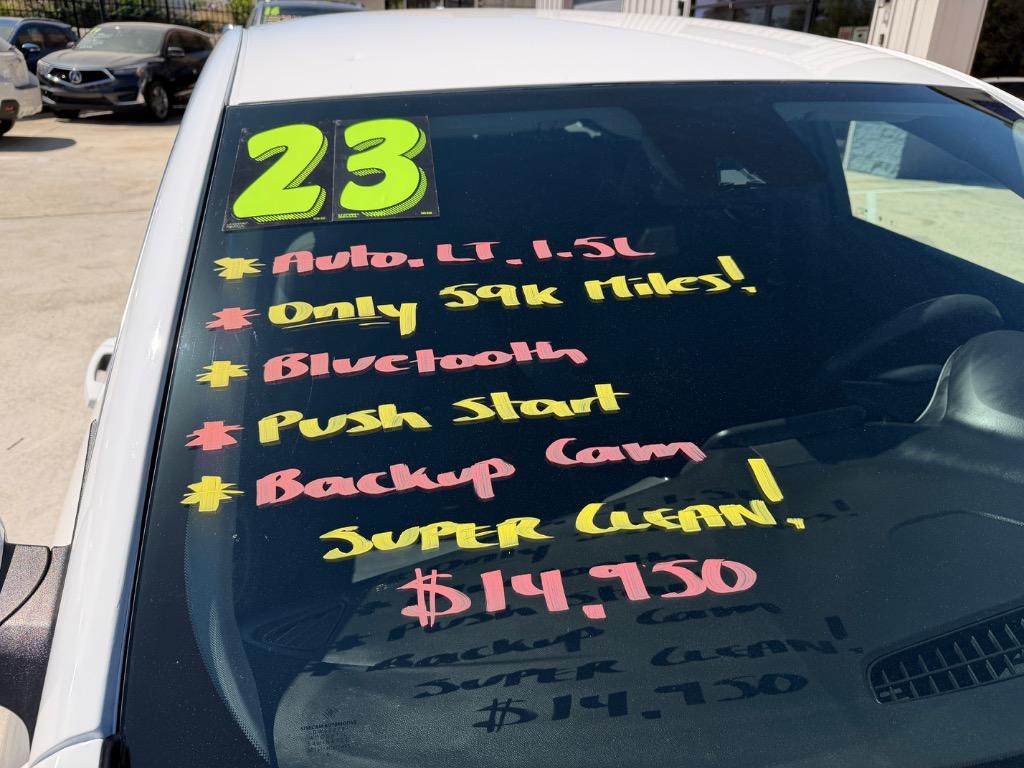 23
* Auto. LT. 1.5L
* Only 59k Miles!
* Bluetooth
* Push Start
* Backup Cam
SUPER CLEAN!
$14,950